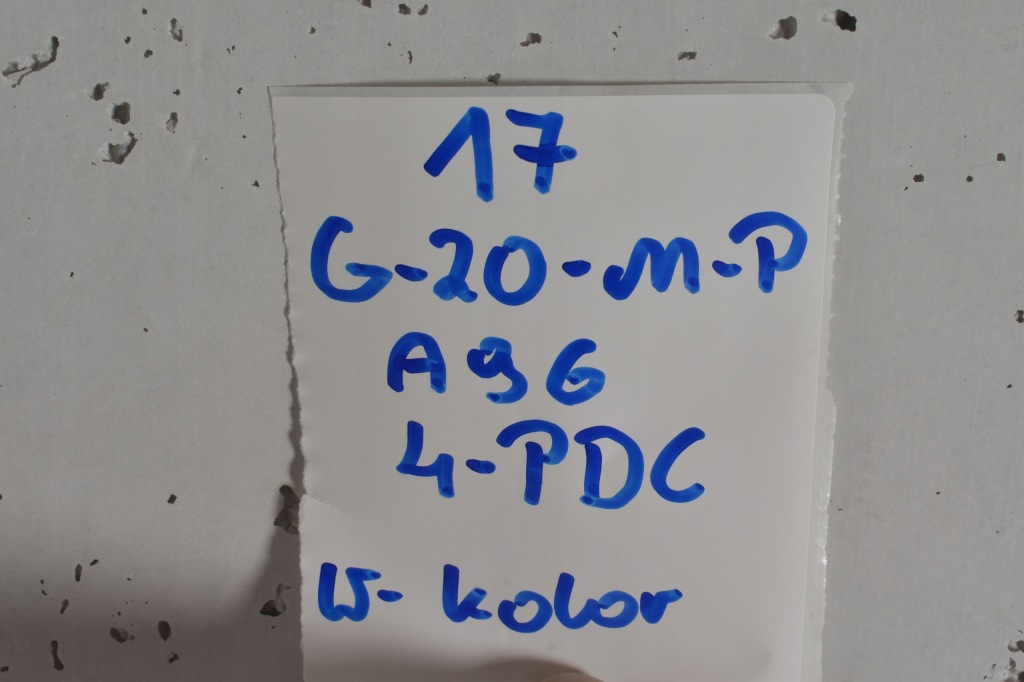 17
G-20-M-P
A96
4-PDC
W- kolor